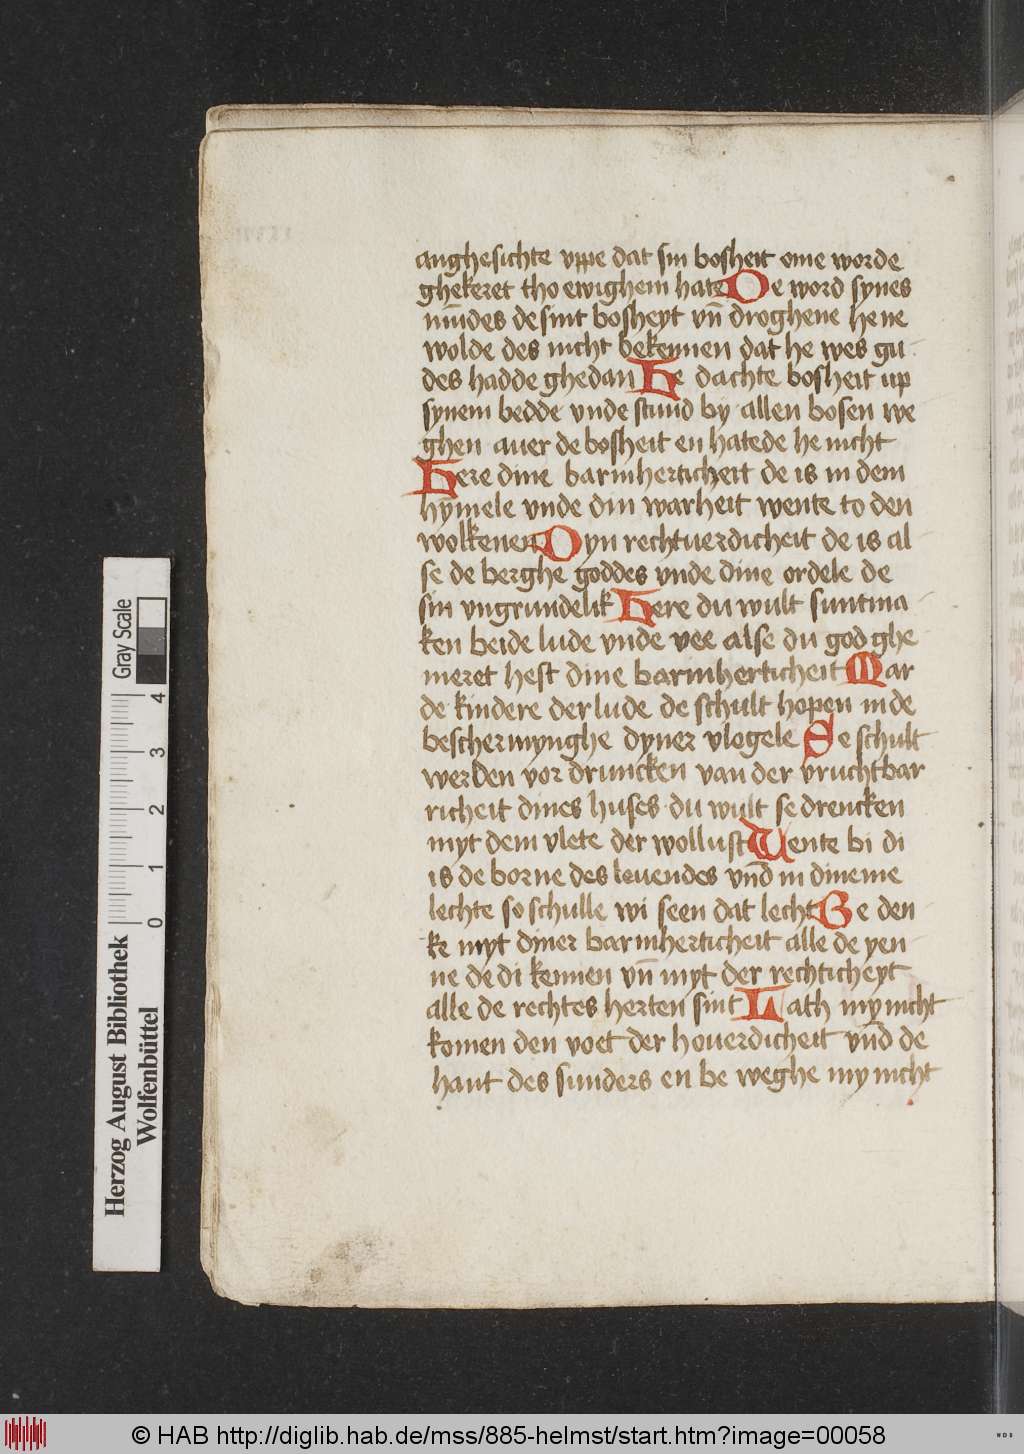 anghesichte vppe dat sin bosheit ome worde
ghekeret tho ewighem hate De word synes
mūdes de sint bosheyt vn̄ droghene he ne
wolde des nicht bekennen dat he wes gu
des hadde ghedan He dachte bosheit up
synem bedde vnde stund by allen bosen we
ghen auer de bosheit en hatede he nicht
Here dine barmherticheit de is in dem
hymele vnde din warheit wente to den
wolkenen Dyn rechtuerdicheit de is al
se de berghe goddes vnde dine ordele de
sin vngrundelik Here du wult sunt ma
ken beide lude vnde vee alse du god ghe
meret hest dine barmherticheit Mar
de kindere der lude de schult hopen in de
beschermynghe dyner vlogele Se schult
werden vordruncken van der vruchtbar
richeit dines huses du wult se drencken
myt dem vlete der wollust Wente bi di
is de borne des leuendes vnd in dineme
lechte so schulle wi seen dat lecht Ge den
ke myt diner barmherticheit alle de yen
ne de di kennen vn̄ myt der rechticheyt
alle de rechtes herten sint Lath my nicht
komen den voet der houerdicheit vnd de
hant des sunders en be weghe my nicht
Gray Scale
4 3 2 1 0
Herzog August Bibliothek
Wolfenbüttel
© HAB http://diglib.hab.de/mss/885-helmst/start.htm?image=00058